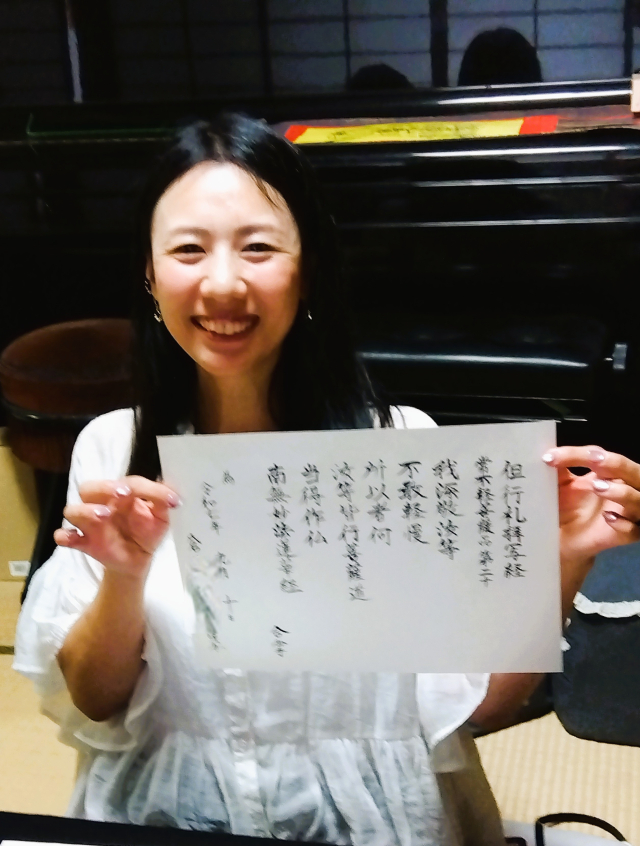 但行礼拝写経
常不軽菩薩品第二十
我深敬汝等
不敢軽慢
所以者何
汝等皆行菩薩道
当得作仏
南無妙法蓮華経 合掌
為
令和七年 九月 十日